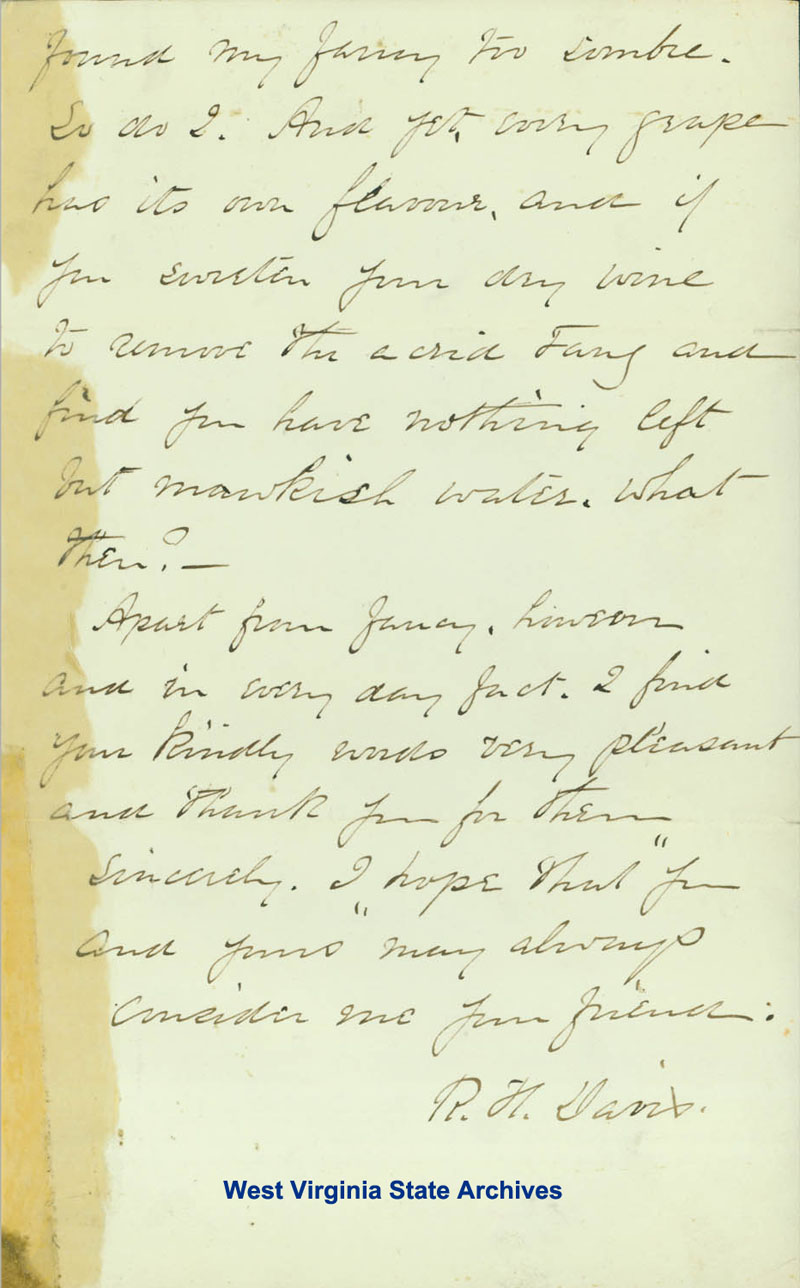 found my fancy too sombre.
So do I. And yet, every grape
has its own flavour, and if
you sweeten your dry wine
to remove the acrid tang and
find you have nothing left
but mawkish water, what
then? —
Apart from fancy, however
and in every day fact. I find
your kindly words very pleasant
and thank you for them
sincerely. I hope that "you
and yours" may always
consider me your friend:
R. H. Davis.
West Virginia State Archives